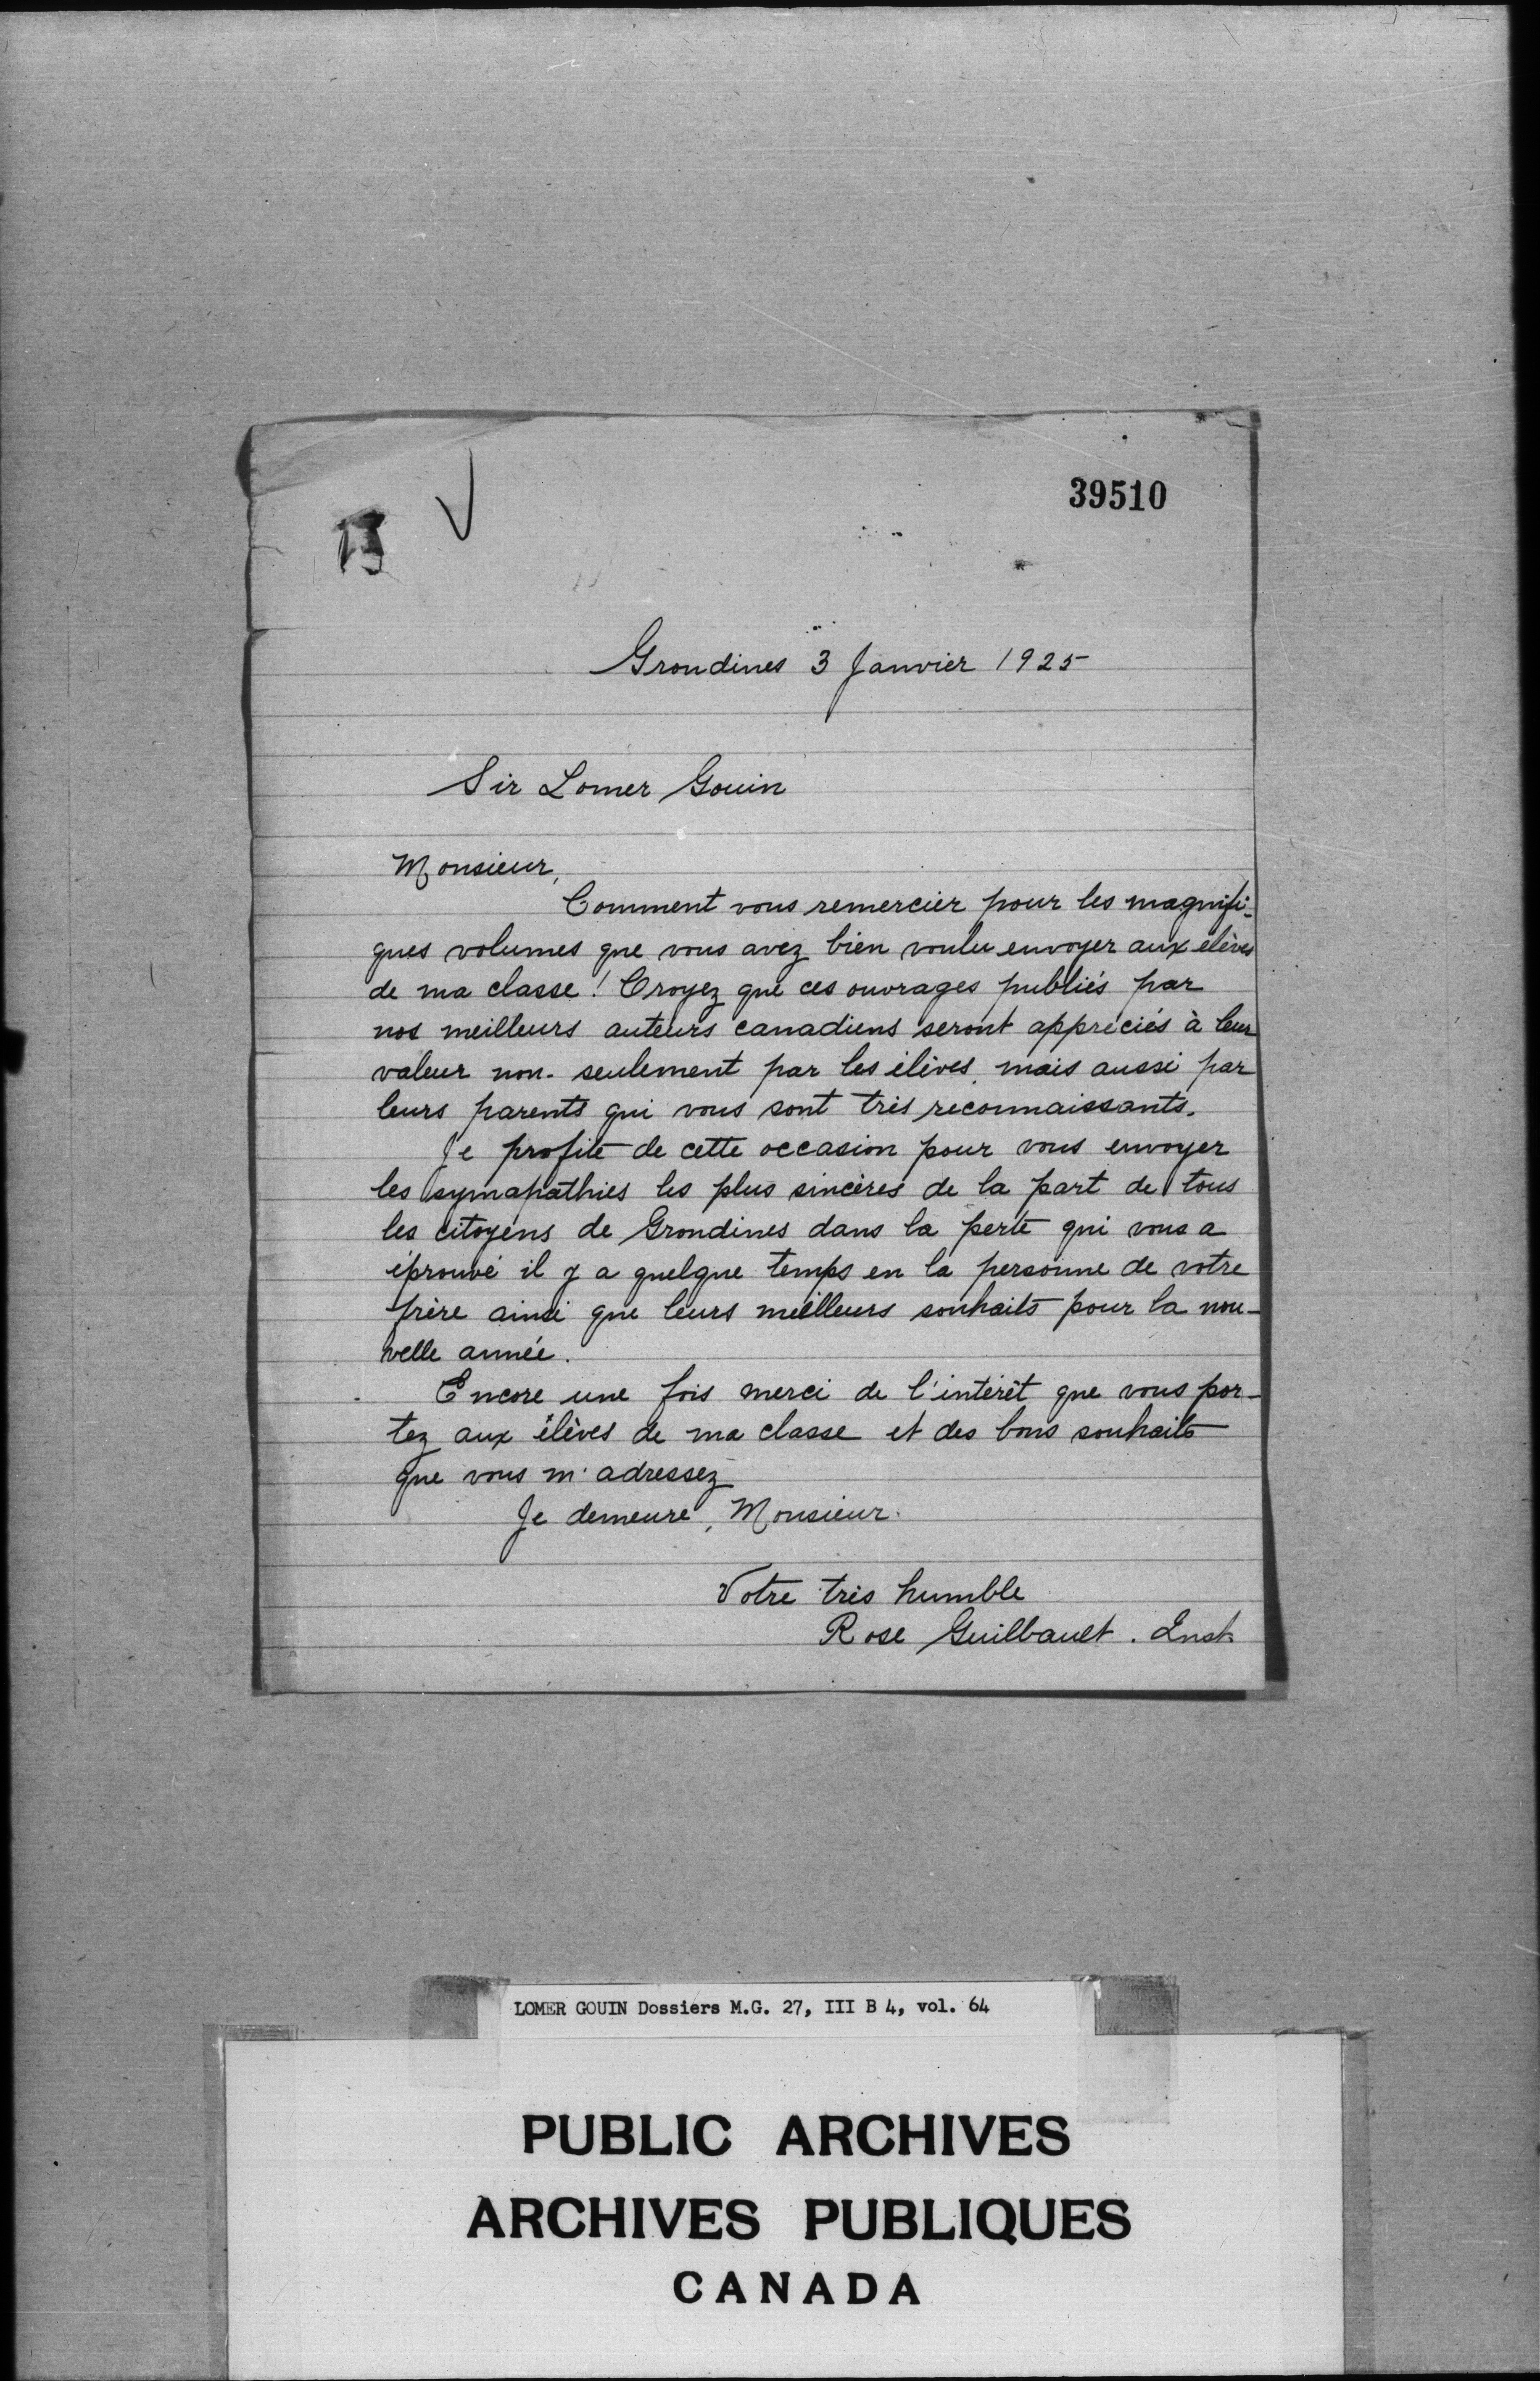 39510
Grondines 3 Janvier 1925
Sir Lomer Gouin
Monsieur,
Comment vous remercier pour les magnifi-
ques volumes que vous avez bien voulu envoyer aux élèves
de ma classe ! Croyez que ces ouvrages publiés par
nos meilleurs auteurs canadiens seront appréciés à leur
valeur non-seulement par les élèves, mais aussi par
leurs parents qui vous sont très reconnaissants.
Je profite de cette occasion pour vous envoyer
les symapathies les plus sincères de la part de tous
les citoyens de Grondines dans la perte qui vous a
éprouvé il y a quelque temps en la personne de votre
frère ainsi que leurs meilleurs souhaits pour la nou-
velle année.
Encore une fois merci de l'intérêt que vous por-
tez aux élèves de ma classe et des bons souhaits
que vous m'adressez
Je demeure, Monsieur.
Votre très humble
Rose Guilbault. Inst.
LOMER GOUIN Dossiers M.G. 27, III B 4, vol. 64
PUBLIC ARCHIVES
ARCHIVES PUBLIQUES
CANADA